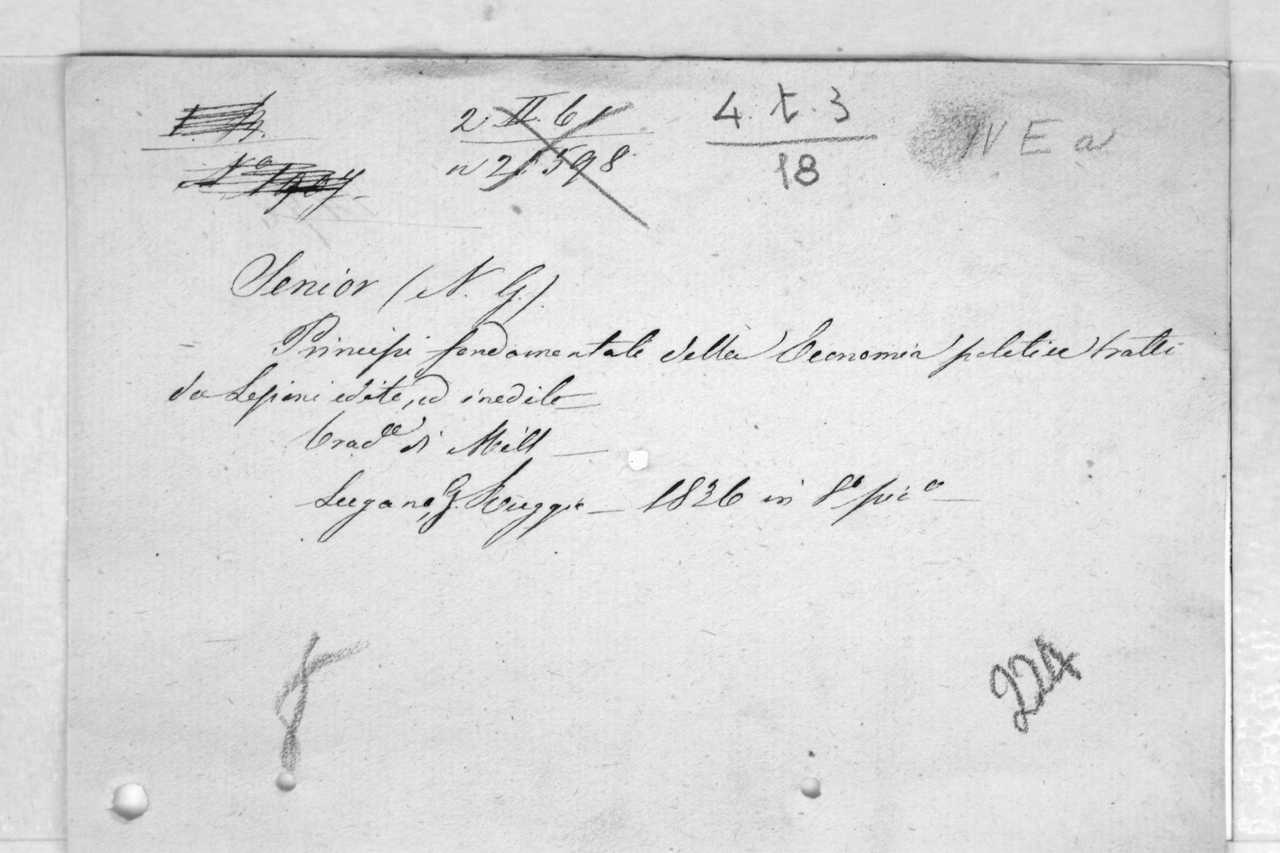 2. II. 61
n 21.598
4. t. 3
18
N E a
Senior (N. G.)
Principi fondamentale della Economia politica tratti
da Lezioni edite, ed inedite
Trad.e di Mill
Lugano, G. Ruggia – 1836 in 8° pic°
8
224